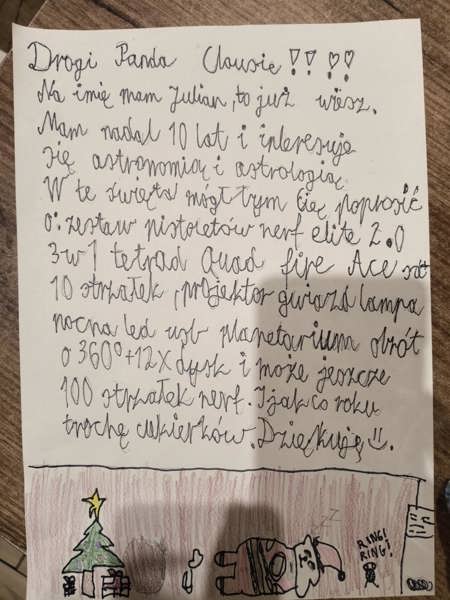 Drogi Panda Clausie !! !!
Na imię mam Julian, to już wiesz.
Mam nadal 10 lat i interesuje
się astronomią i astrologią.
W te święta mógłtym Cię poprosić
o: zestaw pistoletów nerf elite 2.0
3w1 tetrad Quad fire Ace
10 strzałek, projektor gwiazd lampa
nocna led usb planetarium obrót
o 360°+12x dysk i może jeszcze
100 strzałek nerf. I jak co roku
trochę cukierków. Dziękuję
RING!
RING!